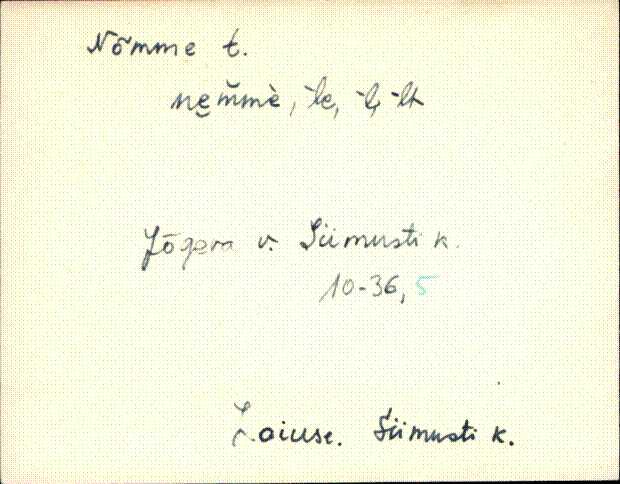 Nõmme t.
ne̮m̆mè, -le, -l, -lt
Jõgeva v. Siimusti k.
10-36, 5
Laiuse. Siimusti k.